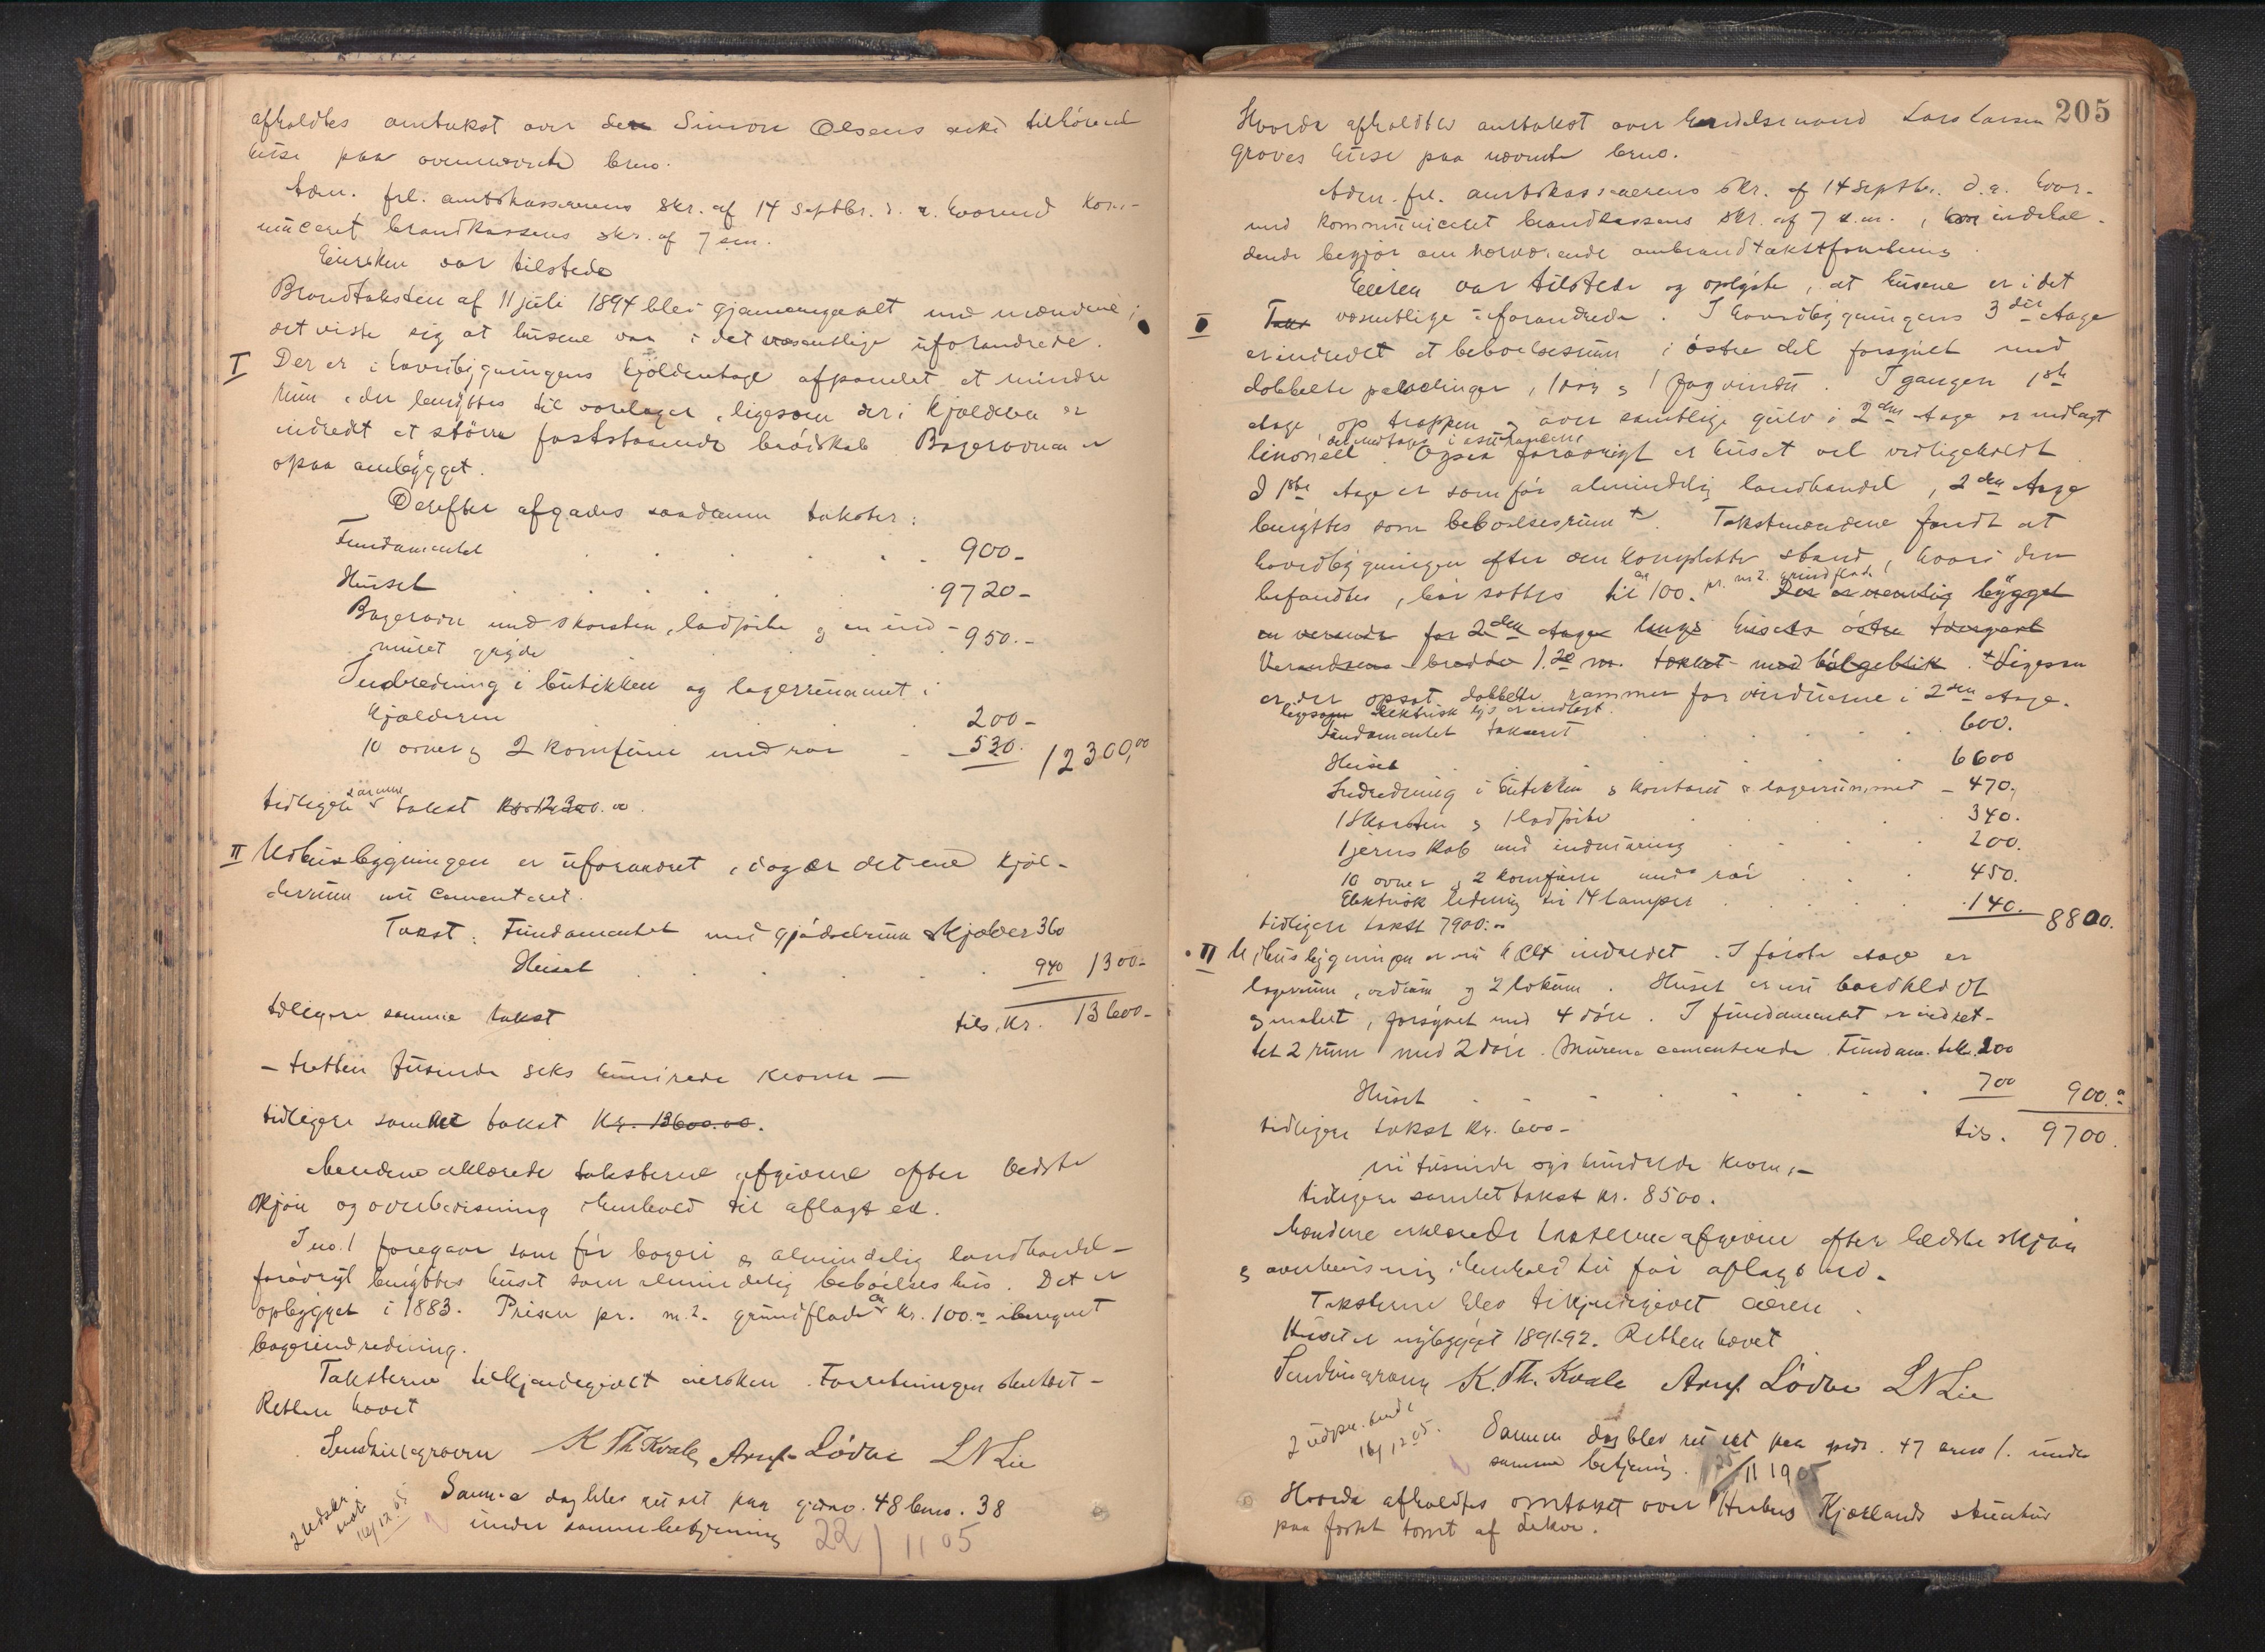 afholdtes omtakst over den Simon Olsens enke tilhørende
huse paa ovennævnte brno.
Adm. frl. amtskasserens skr. af 14 septbr. d. a. hvormed kom-
municeret brandkassens skr. af 7 s.m.
Eiersken var tilstede
Brandtaksten af 11 juli 1894 blev gjennemgaaet med mændene;
det viste sig at husene var i det væsentlige uforandrede.
I Der er i hovedbygningens kjølderetage afpanelet et mindre
rum, der benyttes til varelager, ligesom der i kjælderen er
indredet et større faststaaende brødskab. Bagerovnen er
ogsaa ombygget.
Derefter afgaves saadanne takster:
Fundamentet 900-
Huset 9720-
Bagerovn med skorsten, ladpibe og en ind-
muret gryde 950.-
Indredning i butikken og lagerrummet i
kjælderen 200-
10 ovner og 2 komfurer med rør 530. 12300,00
tidligere samme takst kr. 12300.00.
II Udhusbygningen er uforandret, dog er det ene kjøl-
derrum nu cementeret.
Takst: Fundamentet med gjødselrum & kjælder 360
Huset 940 1300-
tidligere samme takst tils. kr. 13600-
- tretten tusinde seks hundrede kroner -
tidligere samlet takst Kr. 13600.00.
Mændene erklærede taksterne afgivne efter bedste
skjøn og overbevisning i henhold til aflagt ed.
I no. 1 foregaar som før bageri og almindelig landhandel -
forøvrigt benyttes huset som almindelig beboelseshus. Det er
opbygget i 1883. Prisen pr. m.2. grundflade er kr. 100.- iberegnet
bagerindredning.
Taksterne tilkjendegivet eiersken. Forretningen sluttet -
Retten hævet
K Th Kvale Arnf. Lødøe L N Lie
2 udskr.
sendt
16/12.05
Samme dag blev ret sat paa gaardno. 48 brno. 38
under samme betjening 22/11 05
205
Hvorda afholdtes omtakst over handelsmand Lars Larsen
Groves huse paa nævnte brno.
Adm. frl. amtskasserens skr. af 14 septbr. d. a. hvor-
med kommuniceret brandkassens skr. af 7 s.m., indehol-
dende begjær om nærværende ombrandtakstforretning.
Eieren var tilstede og oplyste, at husene er i det
I Takst væsentlige uforandrede. I hovedbygningens 3die etage
er indredet et beboelsesrum i østre del forsynet med
dobbelte panelinger, 1 dør og 1 fag vindu. I gangen 1ste
etage, op trappen og over samtlige gulv i 2den etage er nedlagt
linoneum der medtages i assurancen. Ogsaa forøvrigt er huset vel vedligeholdt
I 1ste etage er som før almindelig landhandel, 2den etage
benyttes som beboelsesrum +. Takstmændene fandt at
hovedbygningen efter den komplette stand, hvori den
befandtes, bør sættes til kr 100.- pr. m2. grundflade. Der er nemlig bygget
en veranda for 2den etage langs husets østre tværgavl
Verandaens bredde 1.20 m. tækket med bølgeblik. + Ligesom
er der opsat dobbelte rammer for vinduerne i 2den etage.
ligesom elektrisk lys er indlagt.
Fundamentet takseret 600.
Huset 6600
Indredning i butikken & kontoret & lagerrummet - 470,
1 skorsten & 1 ladpibe 340.
1 jernskab med indmuring 200.
10 ovner, 2 komfurer med rør 450.
Elektrisk ledning til 14 lamper 140. 8800.
tidligere takst 7900:-
II Udhusbygningen er nu helt indredet. I første etage er
lagerrum, vedrum og 2 lokum. Huset er nu bordklædt
og malet, forsynet med 4 døre. I fundamentet er indret-
tet 2 rum med 2 døre. Murene cementerede. Fundam. tak. 200
Huset 700 900.-
tidligere takst kr. 600- tils. 9700.
ni tusinde syv hundrede kroner,-
tidligere samlet takst kr. 8500.
Mændene erklærede taksterne afgivne efter bedste skjøn
og overbevisning i henhold til før aflagt ed.
Taksterne blev tilkjendegivet eieren.
Huset er nybygget 1891-92. Retten hævet
K. Th. Kvale Arnf. Lødøe L N Lie
2 udskr. sendt
16/12 05.
Samme dag blev ret sat paa gno. 47 brno 1. under
samme betjening. 25/11 1905
Hvorda afholdtes omtakst over Kjærlands
paa festet tomt af dekor.